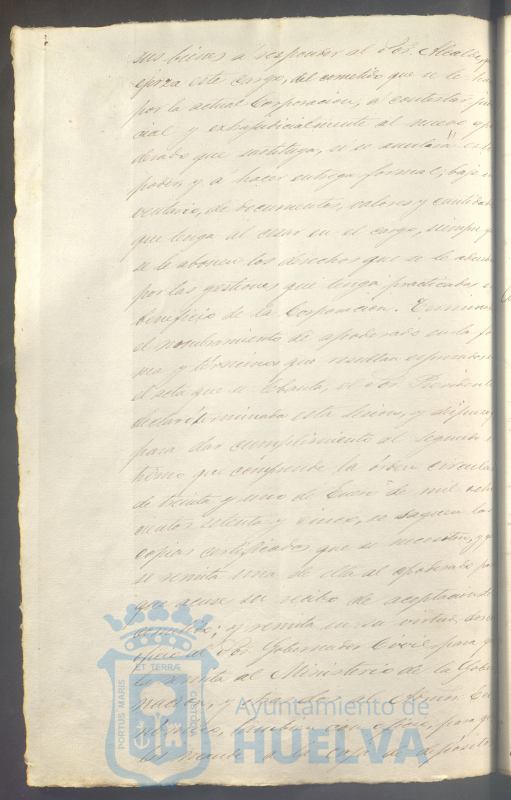 sus bienes á responder al Sor. Alcalde, que
ejerza este cargo, del cometido que se le
por la actual Corporacion, á contestar
cial y extrajudicialmente al nuevo apo
derado que sustituya, si se
poder y á hacer entrega formal, bajo in
ventario, de documentos, valores y cantidades
que tenga al cesar en el cargo, siempre que
se le abonen los derechos que se le
por las gestiones que tenga practicadas en
beneficio de la Corporacion.
el nombramiento de apoderado en la for
ma y términos que resultan
el acta que se levanta, el Sor. Presidente
declaró terminada esta sesion, y dispuso
para dar cumplimiento al segundo
que comprende la órden circular
de treinta y uno de Enero de mil ocho
cientos setenta y cinco, se saquen las
copias certificadas que se necesiten, y que
se remita una de ellas al apoderado para
que acuse su recibo de aceptacion del
cometido; y remita en su virtud,
oficio al Sor. Gobernador Civil para que
la remita al Ministerio de la Gober
nacion, y
oficio, para que
los de la Caja de depósitos
PORTUS MARIS ET TERRÆ CUSTODIA
Ayuntamiento de
HUELVA